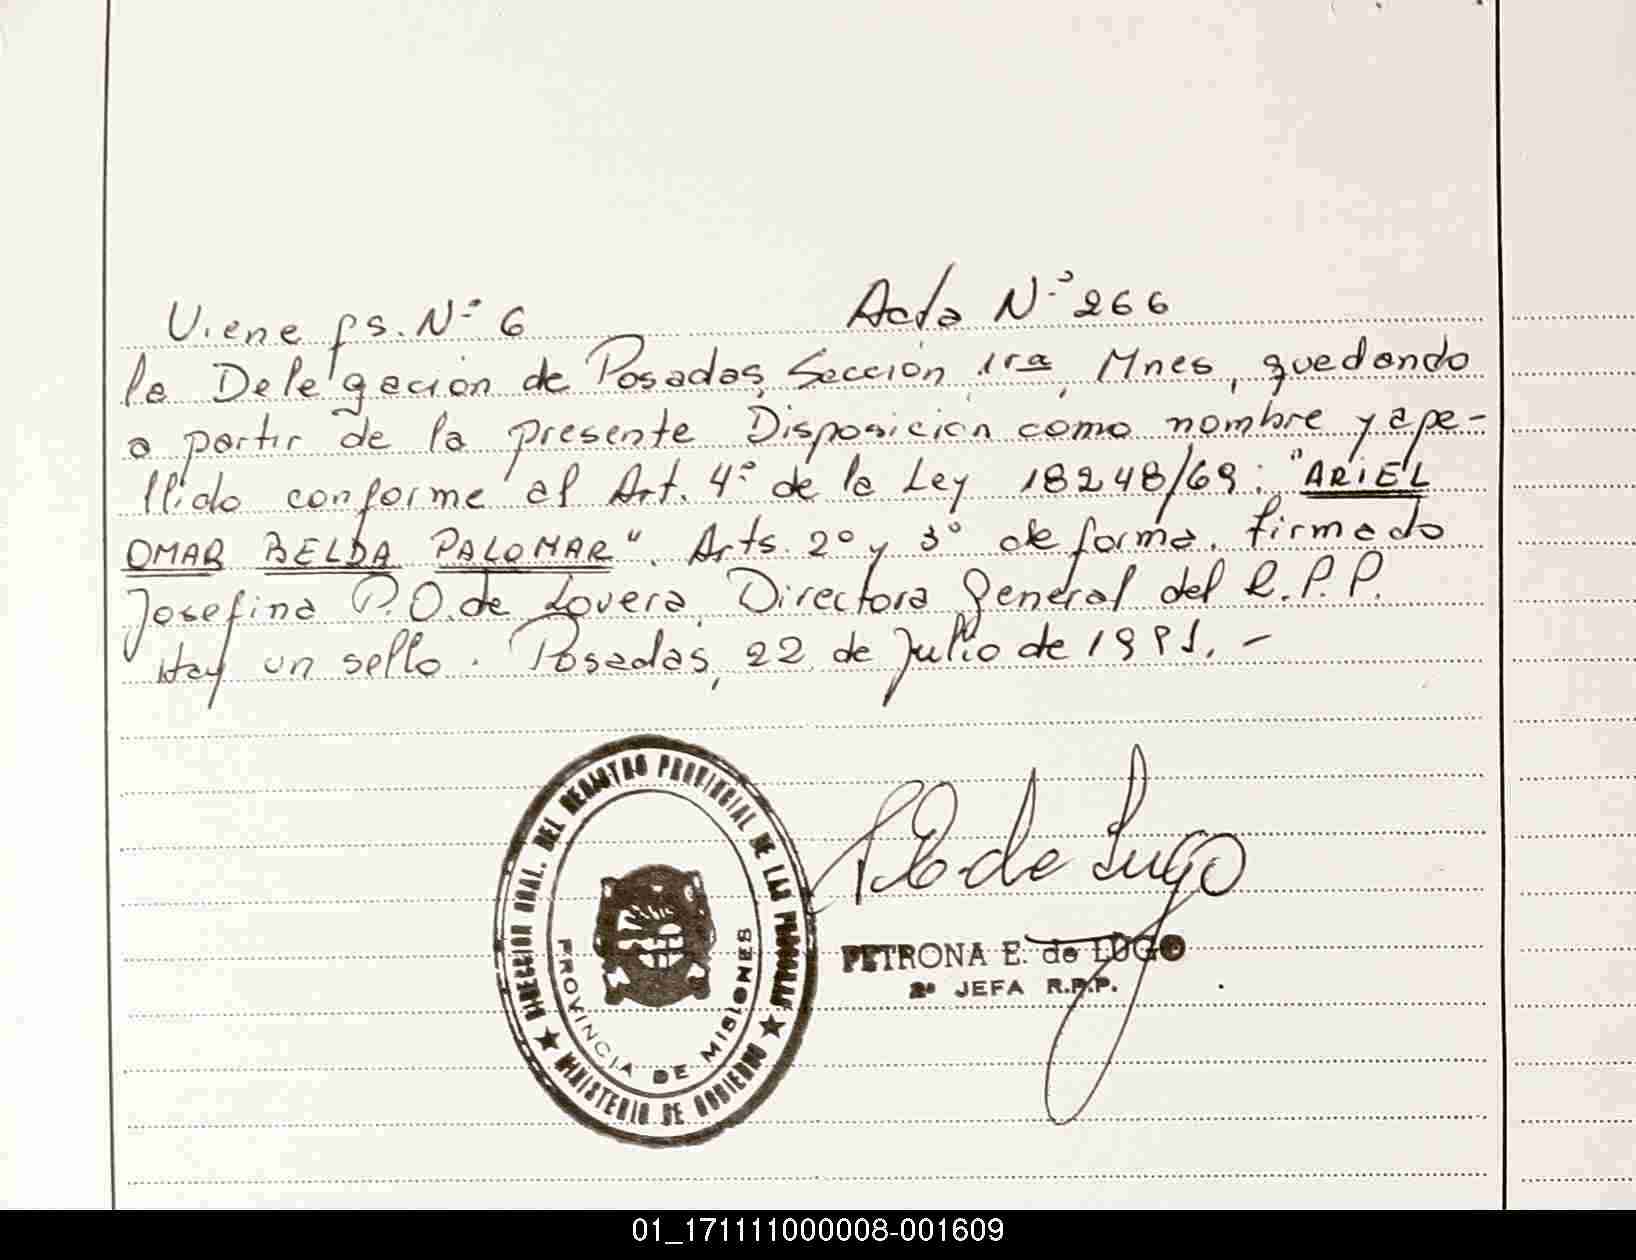 Viene fs. Nº 6 Acta Nº 266
la Delegación de Posadas, Sección 1ra, Mnes, quedando
a partir de la presente Disposición como nombre y ape-
llido conforme al Art. 4º de la Ley 18248/69: "ARIEL
OMAR BELDA PALOMAR". Arts. 2º y 3º de forma. firmado
Josefina P.O. de Lovera, Directora General del R.P.P.
Hay un sello. Posadas, 22 de Julio de 1991.-
DIRECCION GRAL. DEL REGISTRO PROVINCIAL DE LAS PERSONAS
PROVINCIA DE MISIONES
MINISTERIO DE GOBIERNO
de Lugo
PETRONA E. de LUGO
2ª JEFA R.P.P.
01_171111000008-001609